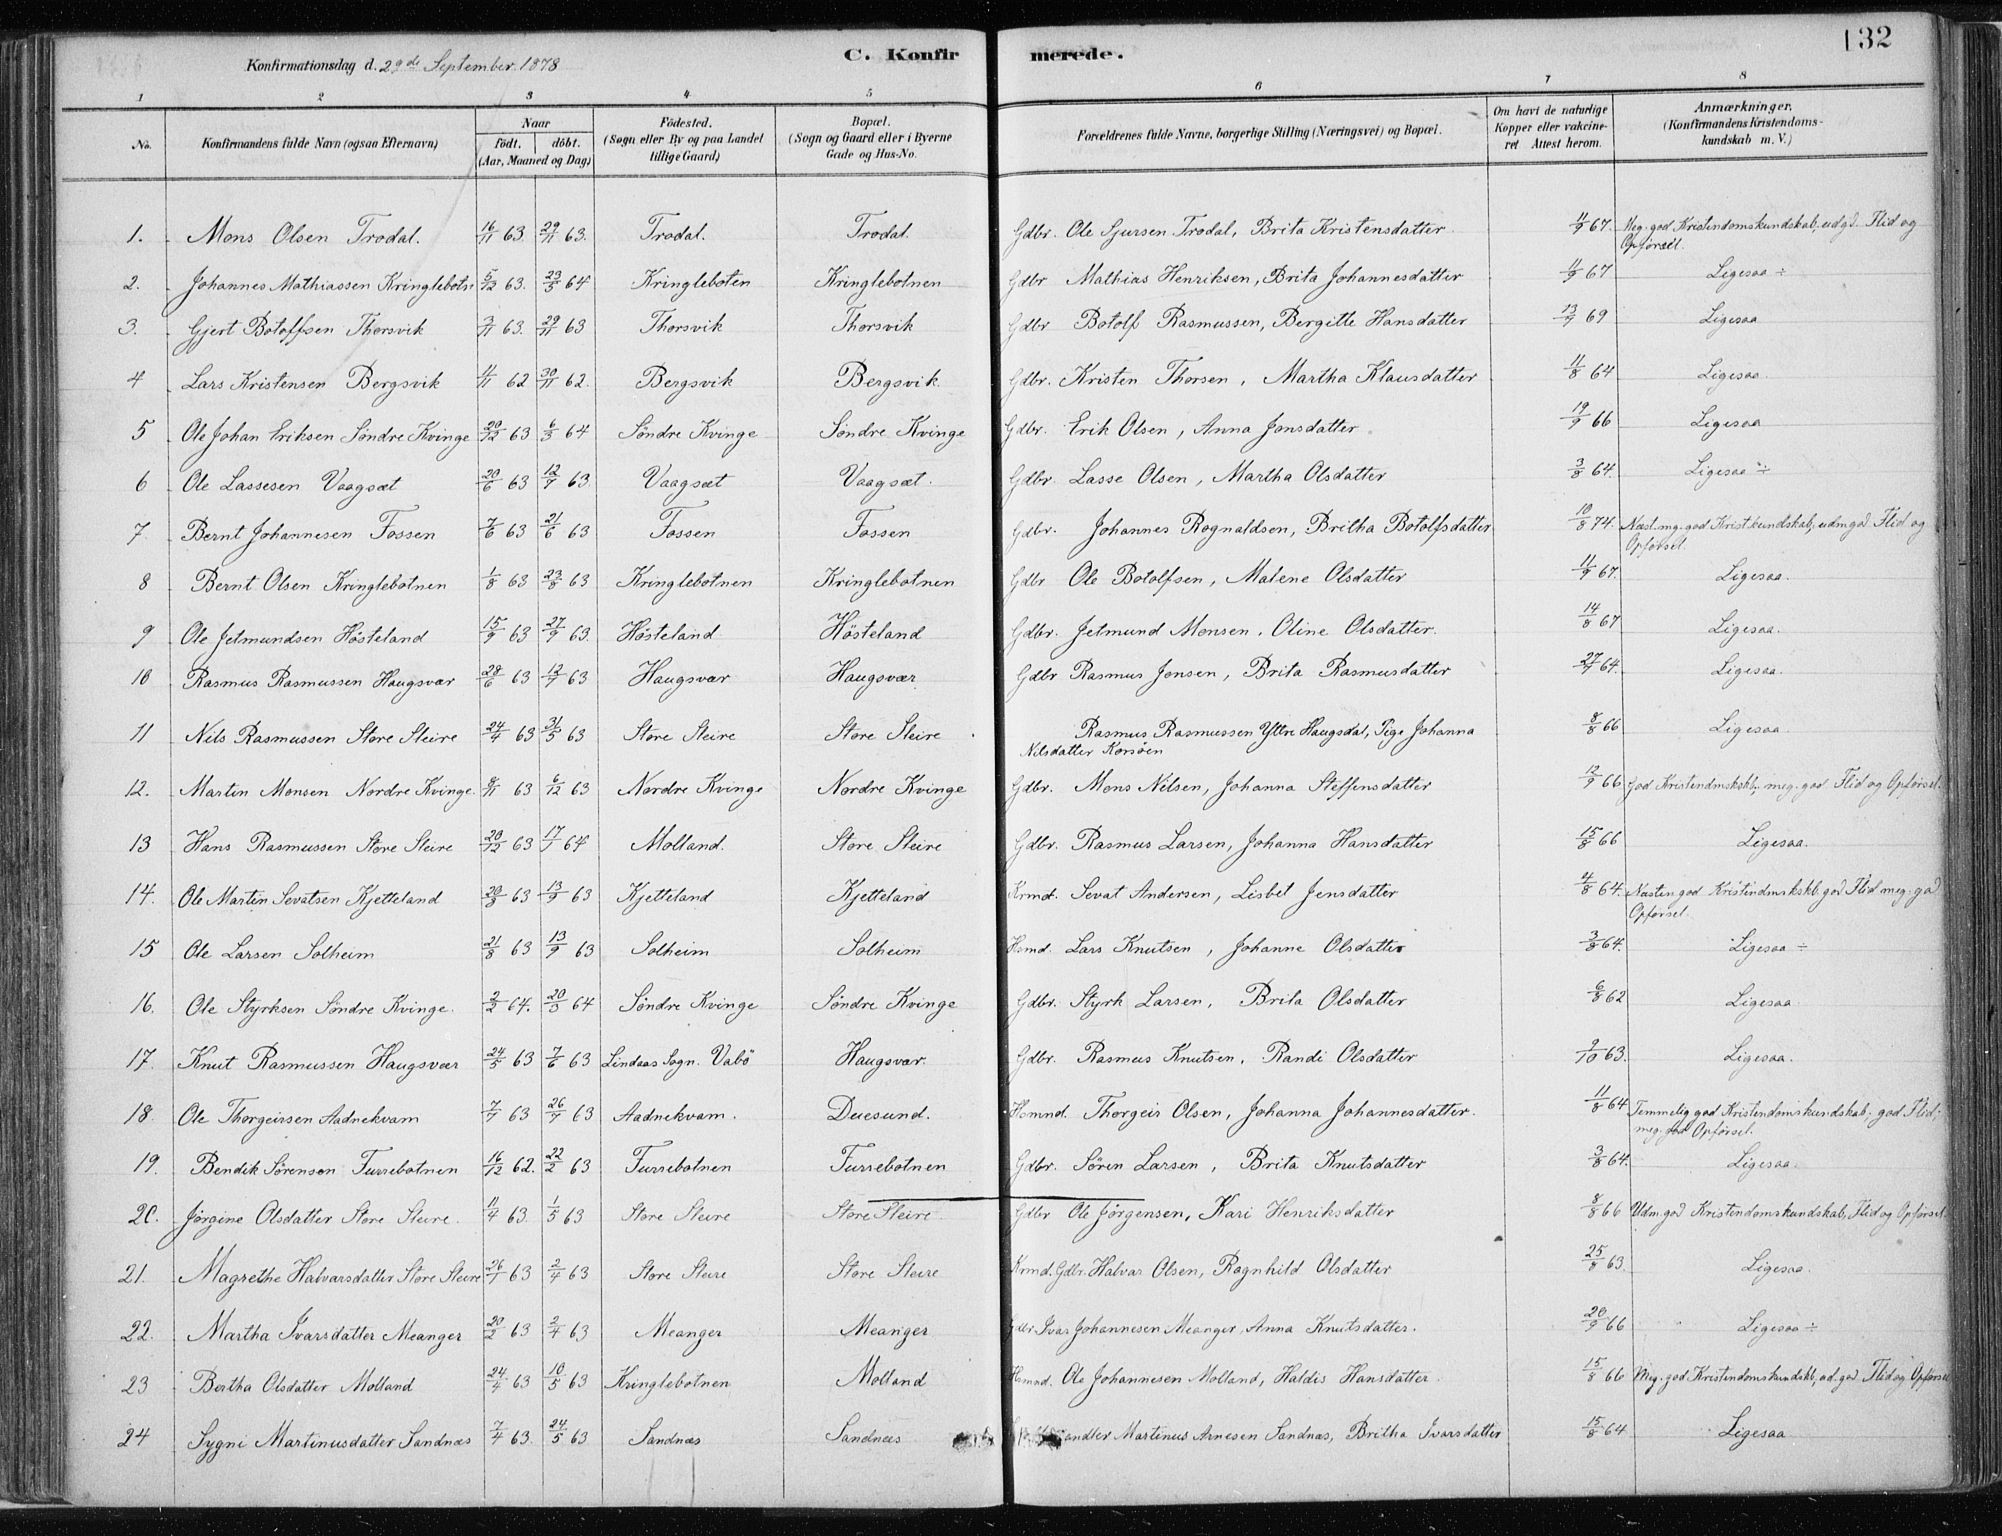 132
Konfirmationsdag d. 29de September 1878
C. Konfirmerede.
1 2 3 4 5 6 7 8
No. | Konfirmandens fulde Navn (ogsaa Efternavn) | Naar født. døbt. (Aar, Maaned og Dag) | Födested. (Sogn eller By og paa Landet tillige Gaard) | Bopæl. (Sogn og Gaard eller i Byerne Gade og Hus-No. | Forældrenes fulde Navne, borgerlige Stilling (Næringsvei) og Bopæl. | Om havt de naturlige Kopper eller vakcineret Attest herom. | Anmærkninger. (Konfirmandens Kristendomskundskab m. V.)
1. Mons Olsen Trodal. 16/11 63 29/11 63. Trodal. Trodal. Gdbr. Ole Sjursen Trodal, Brita Kristensdatter 11/9 67. Meg. god Kristendomskundskab, udgd. Flid og Opførsel.
2. Johannes Mathiassen Kringlebotn 5/12 63. 23/3 64 Kringleboten Kringlebotnen Gdbr Mathias Henriksen, Brita Johannesdatter 11/9 67 Ligesaa ÷
3. Gjert Botolfsen Thorsvik 3/11 63. 29/11 63 Thorsvik Thorsvik Gdbr Botolf Rasmussen, Bergitte Hansdatter 13/9 69 Ligesaa
4 Lars Kristensen Bergsvik 4/11 62 30/11 62. Bergsvik Bergsvik Gdbr. Kristen Thorsen, Martha Klausdatter 11/8 64 Ligesaa.
5 Ole Johan Eriksen Söndre Kvinge 20/12 63 6/3 64 Söndre Kvinge Söndre Kvinge Gdbr. Erik Olsen, Anna Jonsdatter 19/9 66 Ligesaa
6 Ole Lassesen Vaagsæt 20/6 63 12/7 63 Vaagsæt Vaagsæt. Gdbr. Lasse Olsen, Martha Olsdatter 3/8 64. Ligesaa ÷
7 Bernt Johannesen Fossen 7/6 63 21/6 63 Fossen Fossen Gdbr. Johannes Rognaldsen, Britha Botolfsdatter 10/8 74. Næst. mg. god Krist.kundskab, udmgod Flid og Opførsel.
8 Bernt Olsen Kringlebotnen 1/8 63 23/8 63 Kringlebotnen Kringlebotnen Gdbr Ole Botolfsen, Malene Olsdatter 11/9 67. Ligesaa.
9 Ole Jetmundsen Hösteland 15/9 63 27/9 63. Hösteland Hösteland Gdbr. Jetmund Monsen, Oline Olsdatter. 14/8 67 Ligesaa.
10 Rasmus Rasmussen Haugsvær 28/6 63 12/7 63 Haugsvær Haugsvær Gdbr Rasmus Jonsen, Brita Rasmusdatter 27/7 64. Ligesaa.
11 Nils Rasmussen Store Steire 24/4 63 31/5 63 Store Steire Store Steire Rasmus Rasmussen Yttre Haugsdal, Pige Johanna Nilsdatter Korsöen 8/8 66 Ligesaa.
12. Martin Monsen Nordre Kvinge. 8/11 63 6/12 63 Nordre Kvinge Nordre Kvinge Gdbr. Mons Nilsen, Johanna Steffensdatter 12/9 66 God Kristendmskskb, meg. god Flid og Opförsel.
13 Hans Rasmussen Store Steire 20/12 63 17/1 64 Molland. Store Steire Gdbr. Rasmus Larsen, Johanna Hansdatter 15/8 66 Ligesaa.
14. Ole Martin Sevatsen Kjetteland 20/8 63 13/9 63 Kjetteland Kjetteland Krmd. Sevat Andersen, Lisbet Jensdatter 4/8 64. Næsten god Kristendmskskb. god Flid meg. god Opførsel.
15 Ole Larsen Solheim 21/8 63 13/9 63 Solheim Solheim Hsmd. Lars Knutsen, Johanne Olsdatter 3/8 64. Ligesaa ÷
16. Ole Styrksen Söndre Kvinge. 2/2 64. 20/3 64 Söndre Kvinge Söndre Kvinge Gdbr. Styrk Larsen, Brita Olsdatter 6/8 62 Ligesaa
17. Knut Rasmussen Haugsvær 24/5 63 7/6 63 Lindaas Sogn. Vabö Haugsvær. Gdbr. Rasmus Knutsen, Randi Olsdatter 9/10 63. Ligesaa.
18. Ole Thorgeirsen Aadnekvam 7/7 63 26/7 63 Aadnekvam. Duesund. Hsmnd. Thorgeir Olsen, Johanna Johannesdatter. 11/8 64 Temmelig god Kristendomskundskab; god Flid; meg. god Opførsel.
19. Bendik Sörenson Furrebotnen 16/12 62. 22/2 63 Furrebotnen Furrebotnen Gdbr. Sören Larsen, Brita Knutsdatter 3/8 64. Ligesaa.
20. Jörgine Olsdatter Store Steire. 11/4 63. 1/5 63 Store Steire Store Steire Gdbr Ole Jörgensen, Kari Henriksdatter 8/8 66 Udm. god Kristendomskundskab, Flid og Opførsel.
21. Magrethe Halvarsdatter Store Steire 26/1 63 2/4 63 Store Steire Store Steire Krmd. Gdbr. Halvar Olsen, Ragnhild Olsdatter 25/8 63. Ligesaa.
22. Martha Ivarsdatter Meanger 20/2 63 2/4 63 Meanger Meanger Gdbr Ivar Johannesen Meanger, Anna Knutsdatter. 20/9 66 Ligesaa ÷
23 Bertha Olsdatter Molland 24/4 63 10/5 63 Kringlebotnen Molland Hsmnd. Ole Johannesen Molland, Haldis Hansdatter. 15/8 66 Meg. god Kristendomskundskb, ud. god Flid og Opførsel
24 Sygni Martinusdatter Sandnæs 7/4 63. 24/5 63 Sandnæs Sandnæs andler Martinus Arnesen Sandnæs, Britha Ivarsdatter 15/8 64 Ligesaa